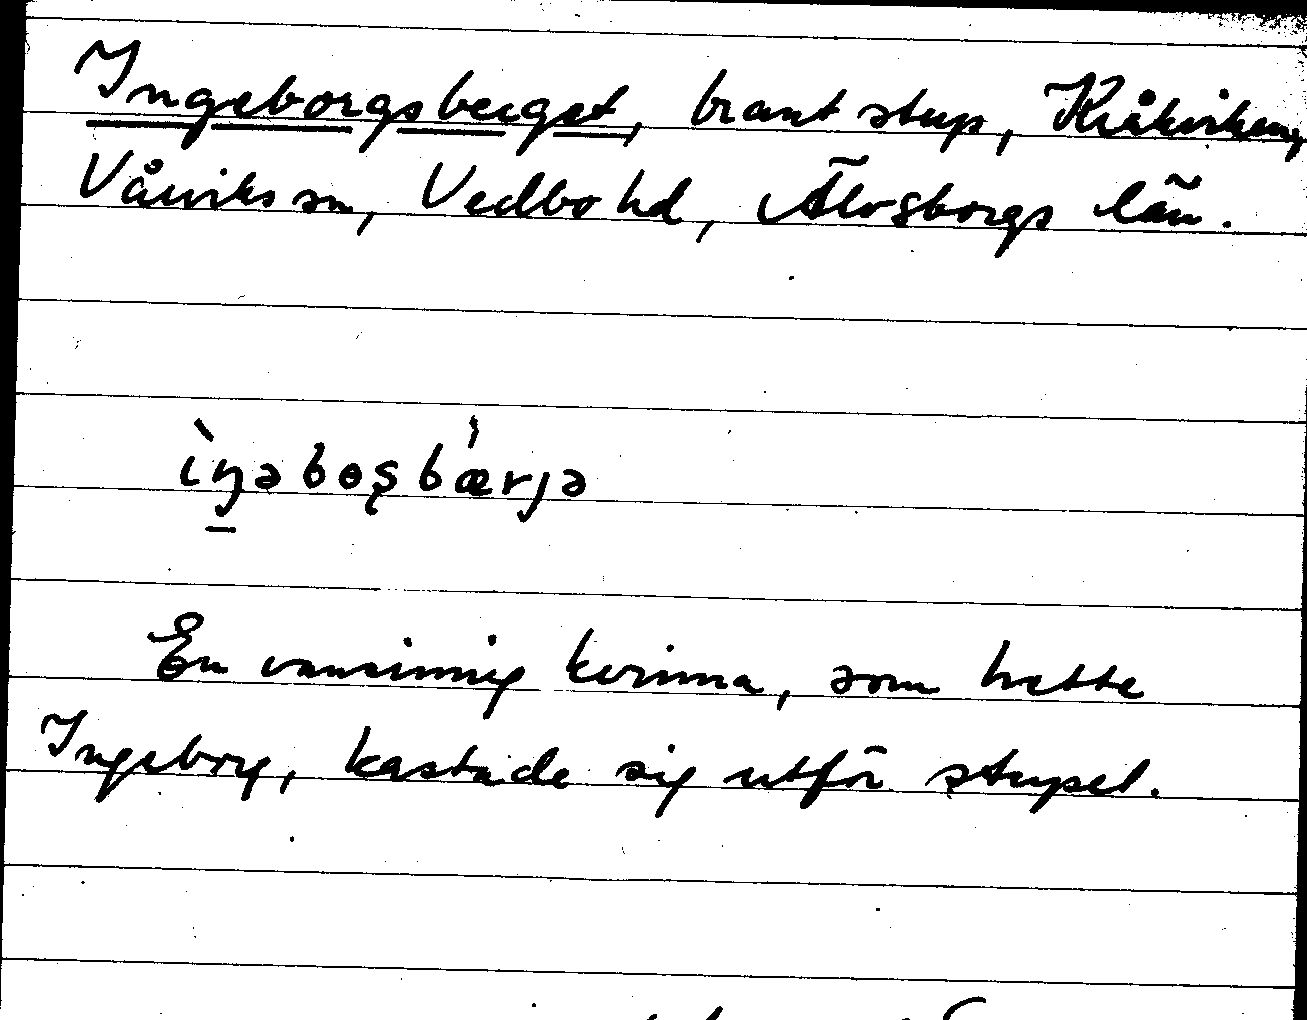 Ingeborgsberget, brant stup, Kråkviken,
Vårviks sn, Vedbo hd, Älvsborgs län.
ìŋəbɵʂbǽrjə
En vansinnig kvinna, som hette
Ingeborg, kastade sig utför stupet.